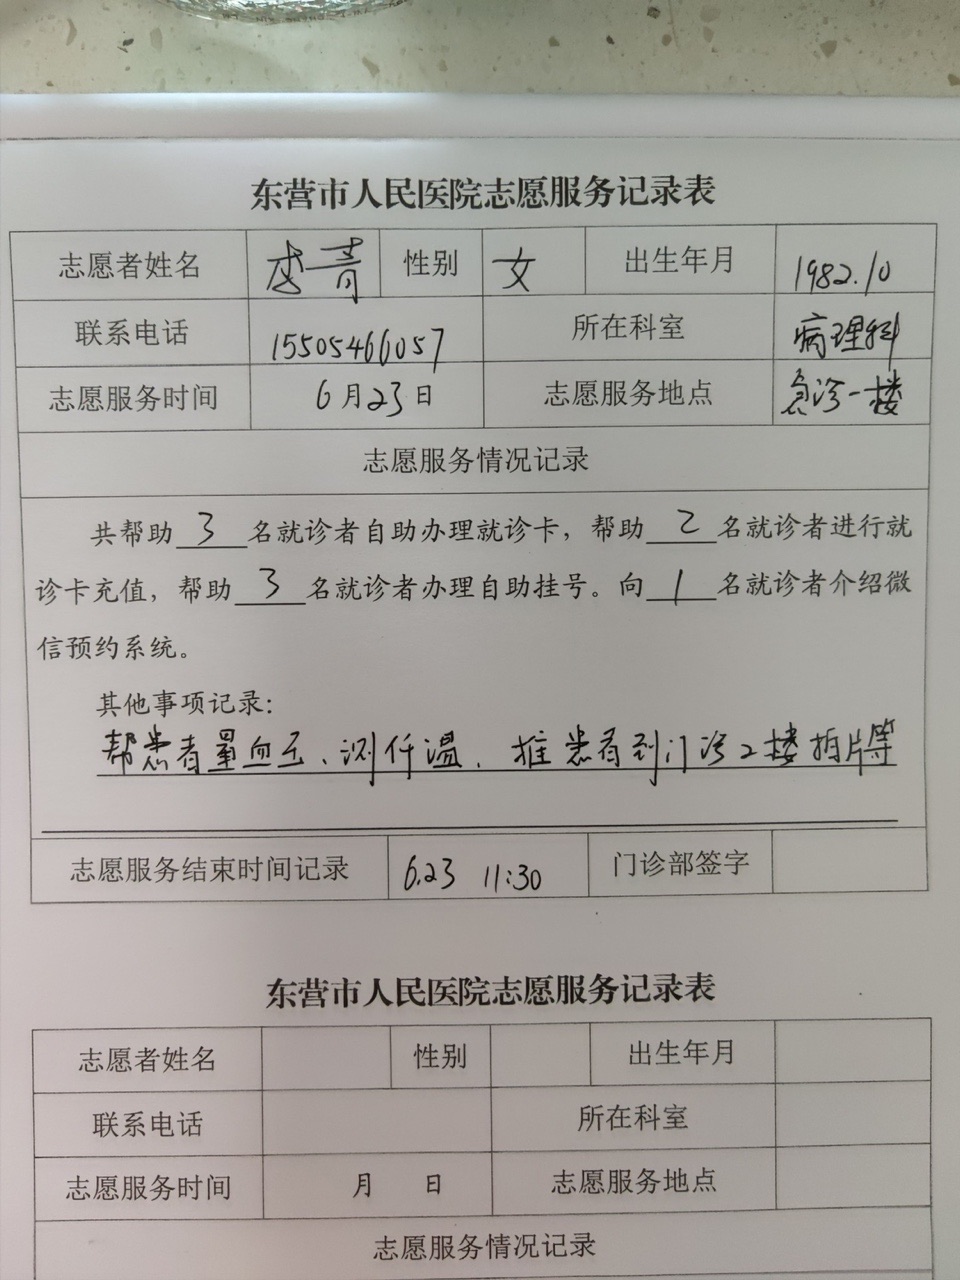 东营市人民医院志愿服务记录表
志愿者姓名 李青 性别 女 出生年月 1982.10
联系电话 15505466057 所在科室 病理科
志愿服务时间 6月23日 志愿服务地点 急诊一楼
志愿服务情况记录
共帮助 3 名就诊者自助办理就诊卡，帮助 2 名就诊者进行就
诊卡充值，帮助 3 名就诊者办理自助挂号。向 1 名就诊者介绍微
信预约系统。
其他事项记录：
帮患者量血压、测体温、推患者到门诊2楼拍片等
志愿服务结束时间记录 6.23 11:30 门诊部签字
东营市人民医院志愿服务记录表
志愿者姓名 性别 出生年月
联系电话 所在科室
志愿服务时间 月 日 志愿服务地点
志愿服务情况记录